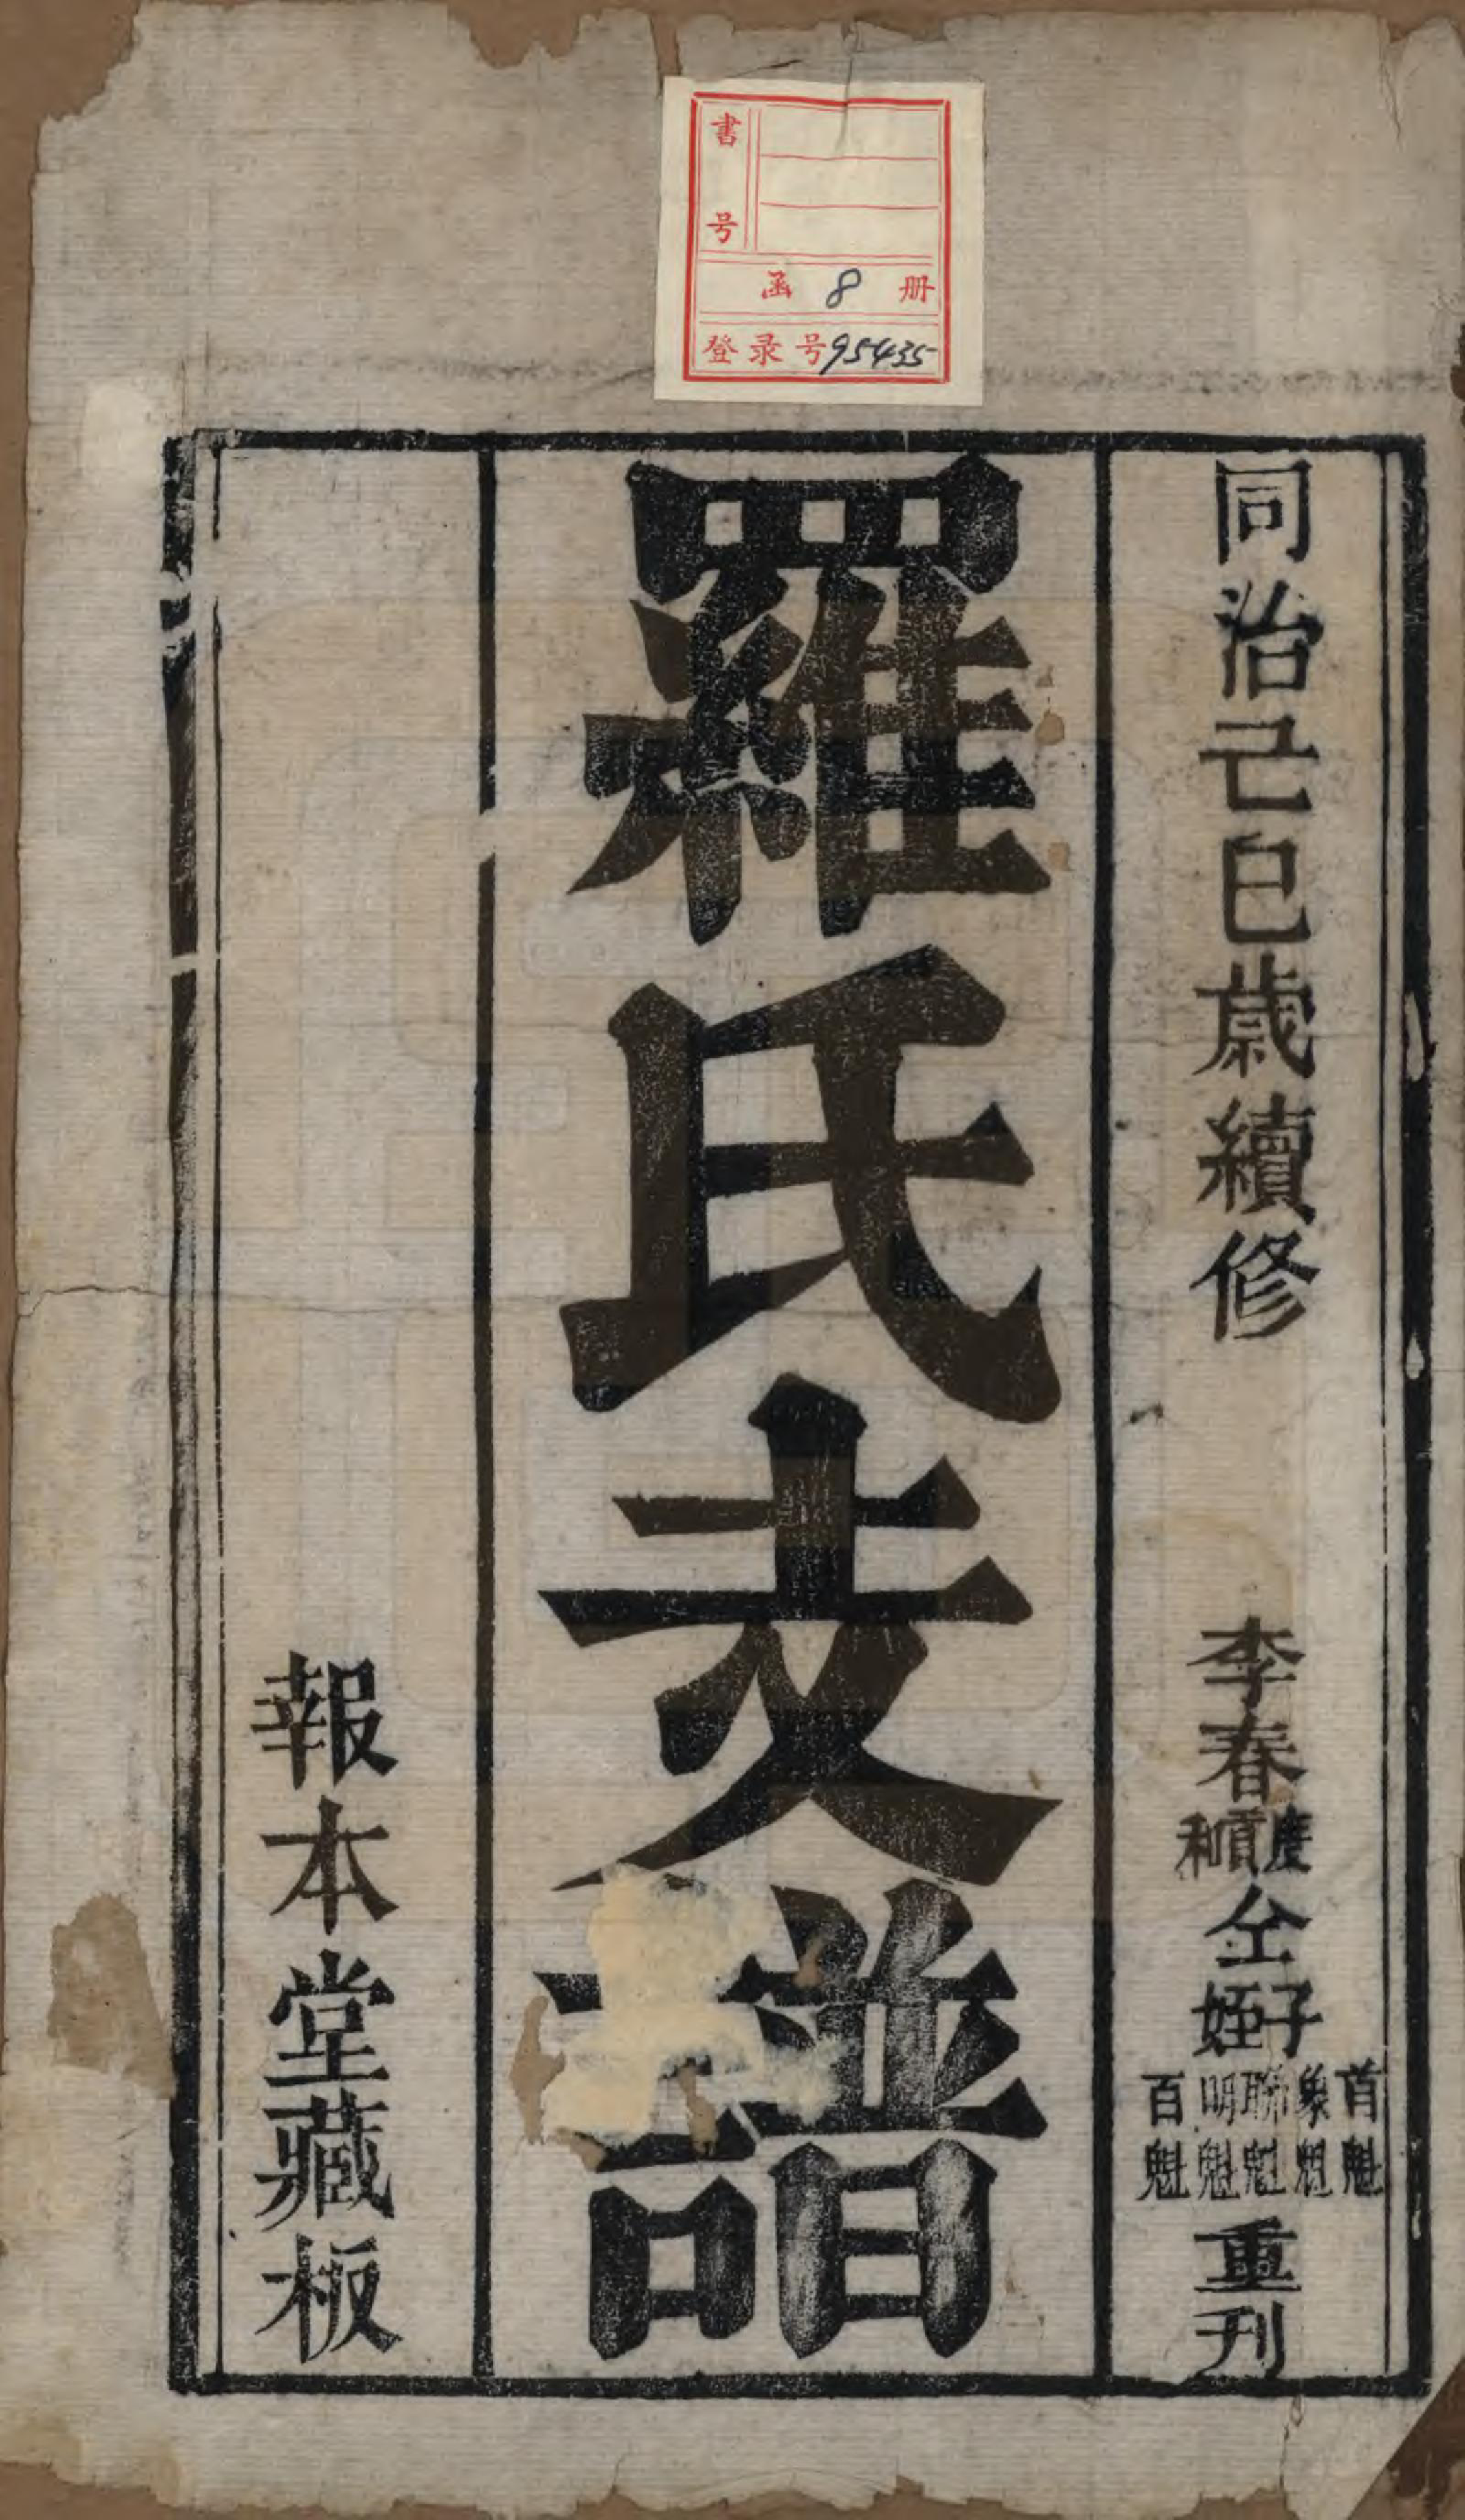 書号
函 8 册
登录号95435
同治己巳歳續修
李春
度
貢
和
仝
子
姪
首魁
象魁
聯魁
明魁
百魁
重刊
羅氏支譜
報本堂藏板